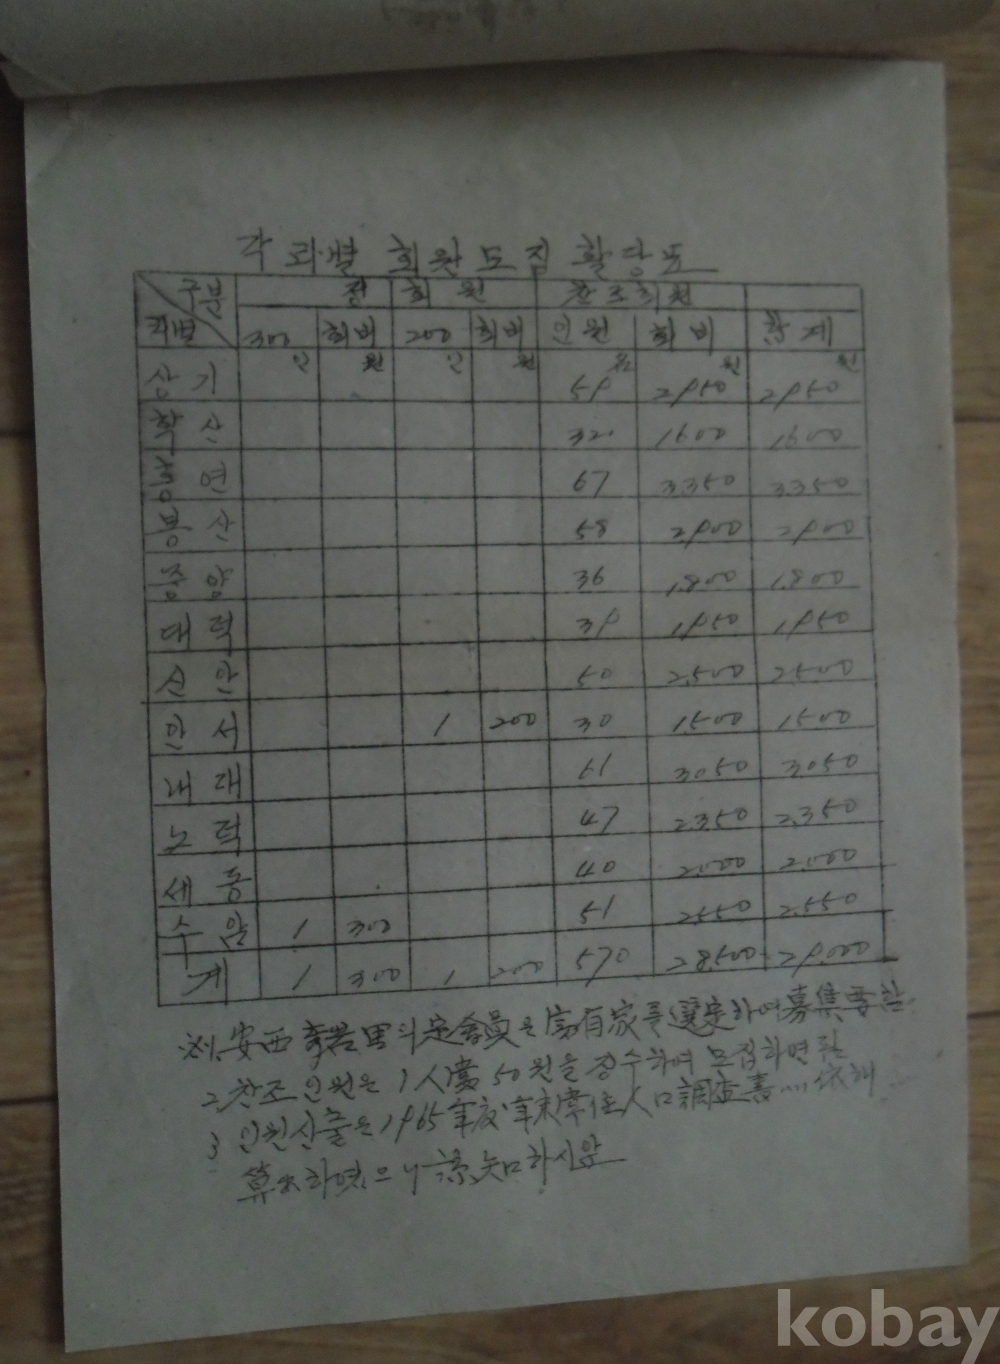 각 리별 회원모집 활당표
구분 정 회 원 찬조회원
리별 300 회비 200 회비 인원 회비 합계
인 원 인 원 원 원
상기 59 2950 2950
학산 32 1600 1600
용연 67 3,350 3,350
봉산 58 2900 2900
중앙 36 1,800 1,800
대덕 39 1950 1950
신안 50 2,500 2500
안서 1 200 30 1500 1500
내대 61 3050 3050
노덕 47 2,350 2,350
세동 40 2,000 2,000
수암 1 300 51 2550 2,550
계 1 300 1 200 570 28,500 29,000
※1, 安西 里의 定會員은 富有家를 選定하여 募集要함
2, 찬조인원은 1人當 50원을 징수하여 모집하면됨
3 인원산출은 1965年度 年末常住人口調査 依해
算出하였으니 諒知하시압
kobay